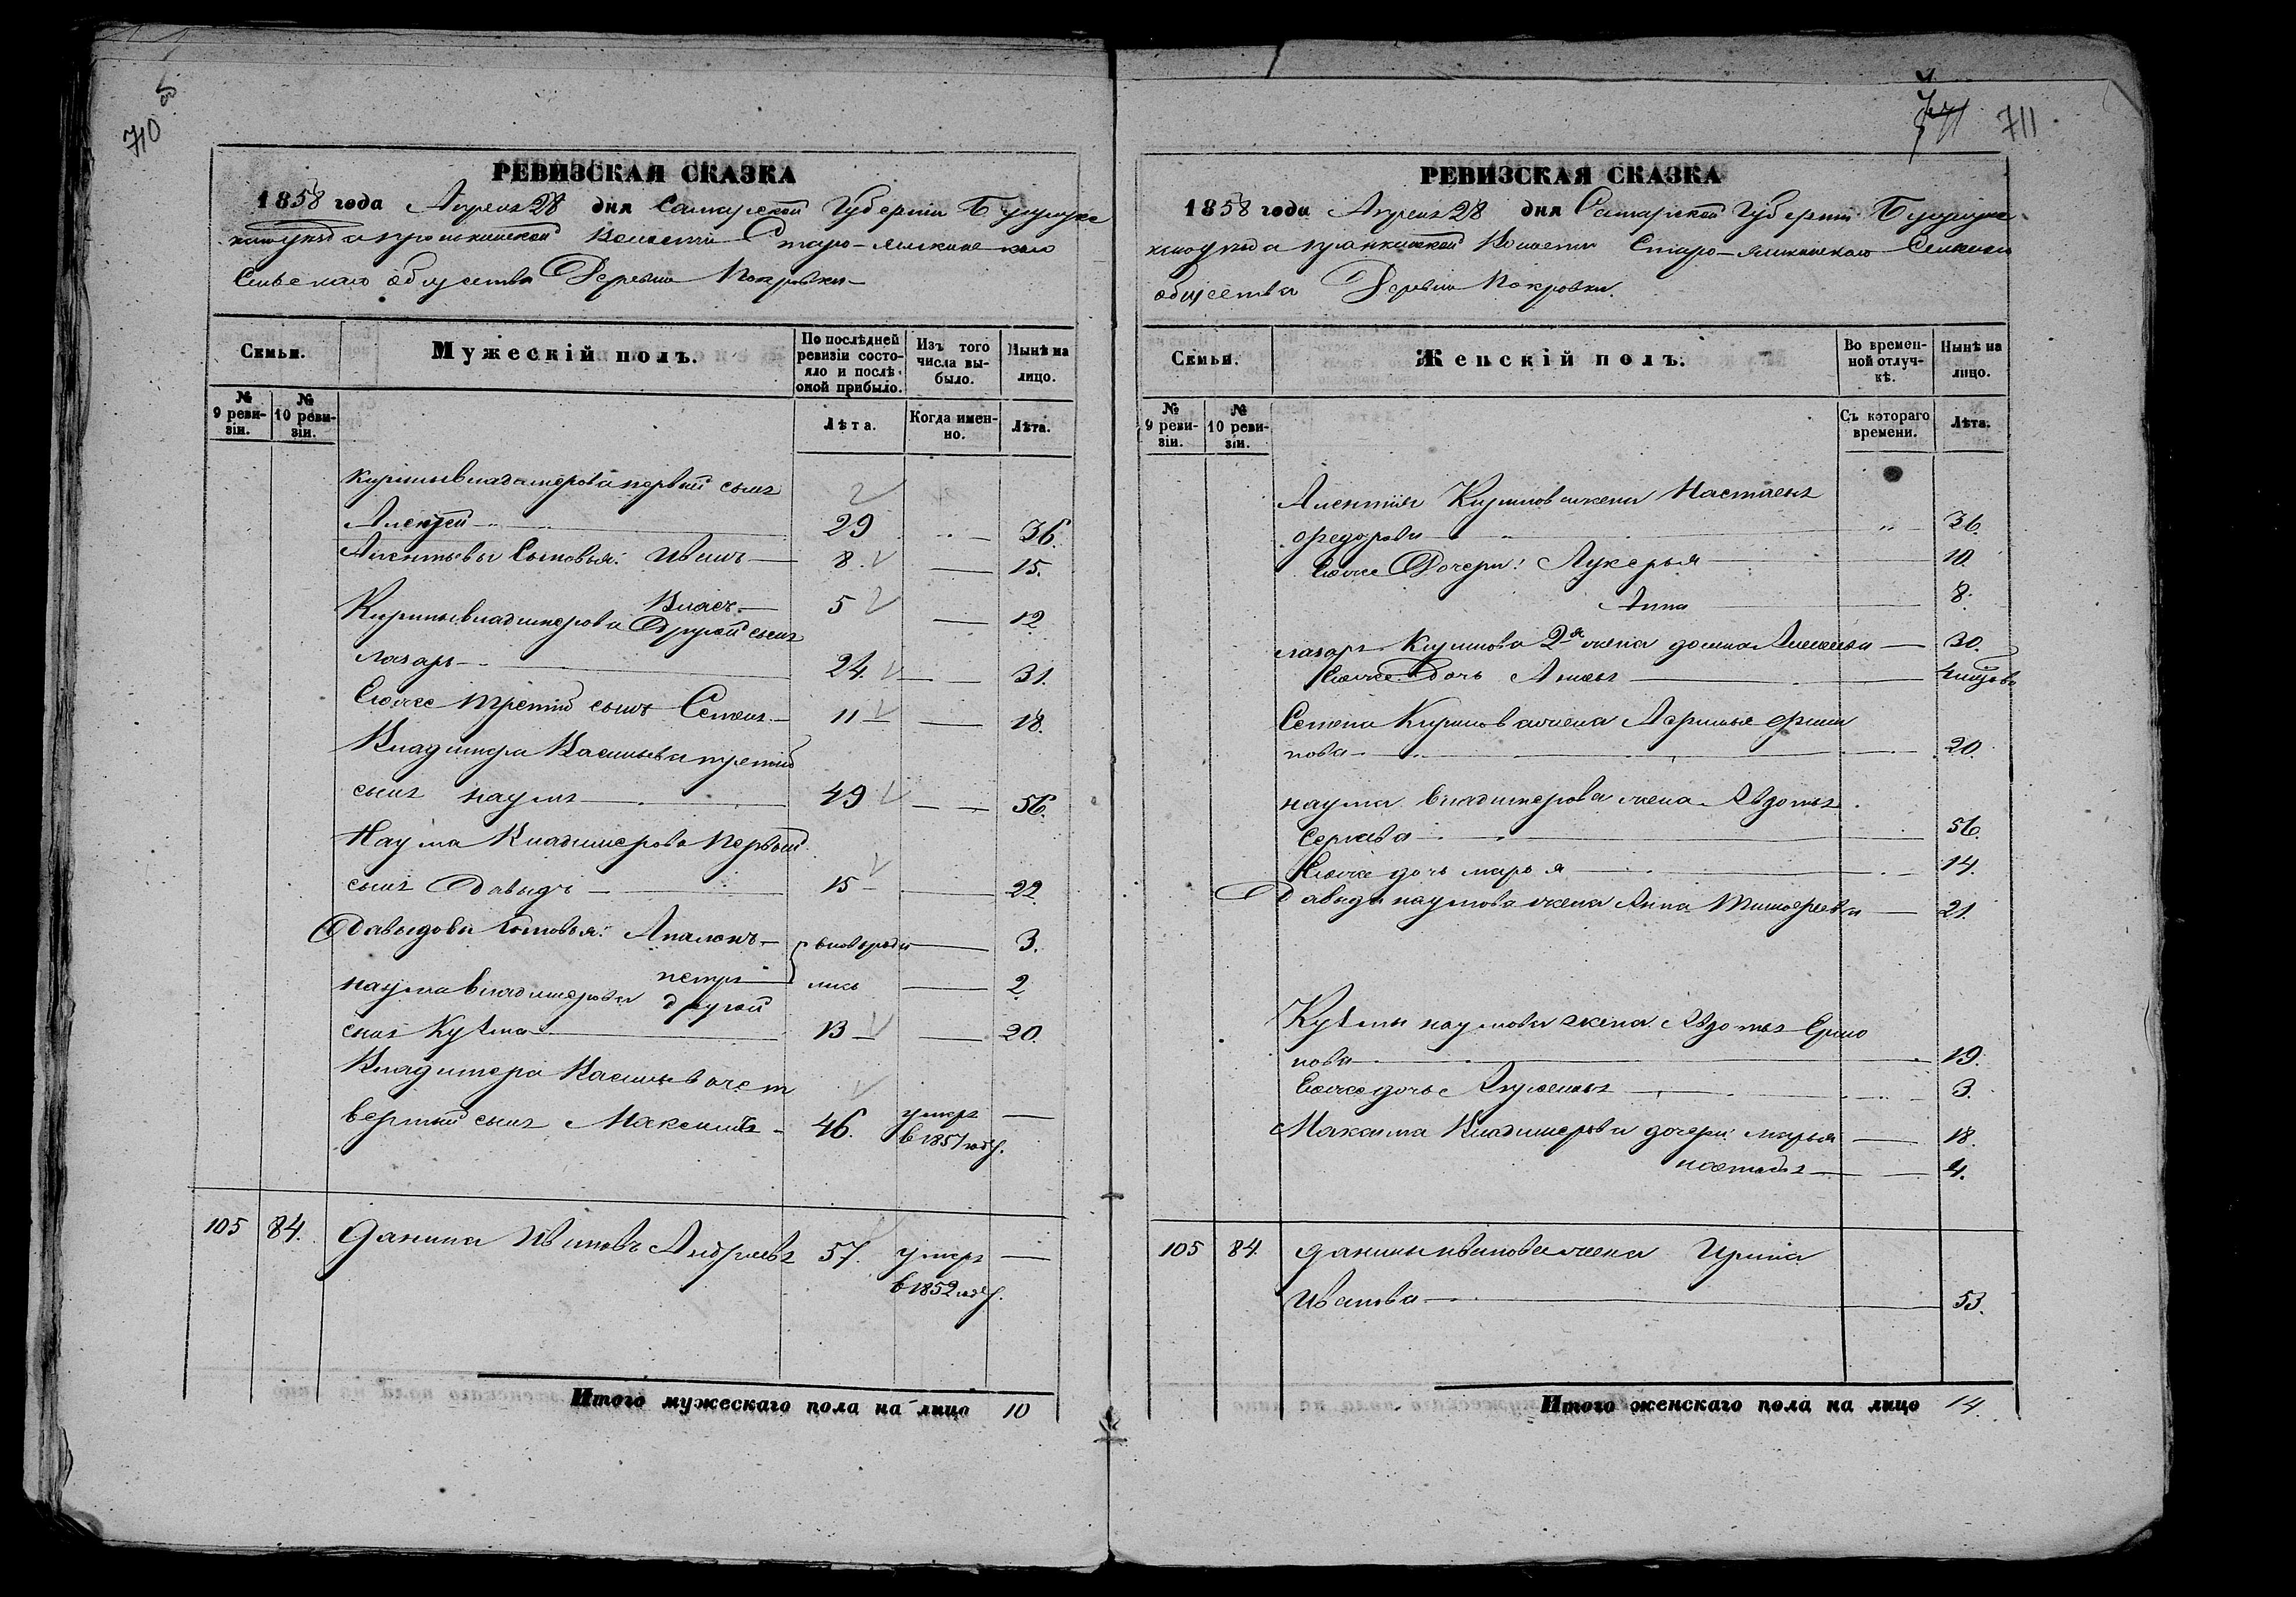 710
РЕВИЗСКАЯ СКАЗКА
1858 года Апреля 28 дня Самарской Губернии Бузулукс
каго уезда Волости Старо-
Сельскаго общества Деревни Покровки
Семьи.
Мужескій полъ.
По послѣдней ревизіи состояло и послѣ оной прибыло.
Изъ того числа выбыло.
Нынѣ на лицо.
№ 9 ревизіи.
№ 10 ревизіи.
Лѣта.
Когда именно.
Лѣта.
Кирилы владимерова первый сынъ
Алентей 29 36.
Алентьевы Сыновья: Иванъ 8. 15.
Власъ 5 12
Кирилы владимерова Другой сынъ
лазарь 24. 31.
Евоже третий сынъ Семенъ 11 18.
Владимера Васильева третий
сынъ наумъ 49 56.
Наума Владимерова первый
сынъ Давыдъ 15 22.
Давыдовы Сыновья: Апалонъ вновь роди 3.
петръ лись 2
наума владимерова другой
сынъ Кузма 13 20.
Владимера Васильева чет
вертый сынъ Максимъ 46. умеръ
в 1857 году.
105 84. Данила Ивановъ Андреевъ 57. умеръ
в 1852 году.
Итого мужескаго пола на лицо 10
711
РЕВИЗСКАЯ СКАЗКА
1858 года Апреля 28 дня Самарской Губернии Бузулукс
каго уезда Волости Старо- Сельскаго
общества Деревни Покровки.
Семьи.
Женскій полъ.
Во временной отлучкѣ.
Нынѣ на лицо.
№ 9 ревизіи.
№ 10 ревизіи.
Съ котораго времени.
Лѣта.
Алентия Кирилова жена Настасья
федорова „ 36.
Евоже Дочери: Лукерья 10.
Анна 8.
лазаря Кирилова 2я жена домна 30.
Евоже Дочь
Семена Кирилова жена
пова 20.
наума владимерова жена Авдотья
Сергева 56.
Евоже дочь марья 14.
Давыда наумова жена Анна Тимофеева 21.
Кузмы наумова жена Авдотья Ермо
19.
Евоже дочь 3.
Максима Владимерова дочери: марья 18.
настасья 4.
105 84. данилы иванова жена Ирина
Иванова 53.
Итого женскаго пола на лицо 14.